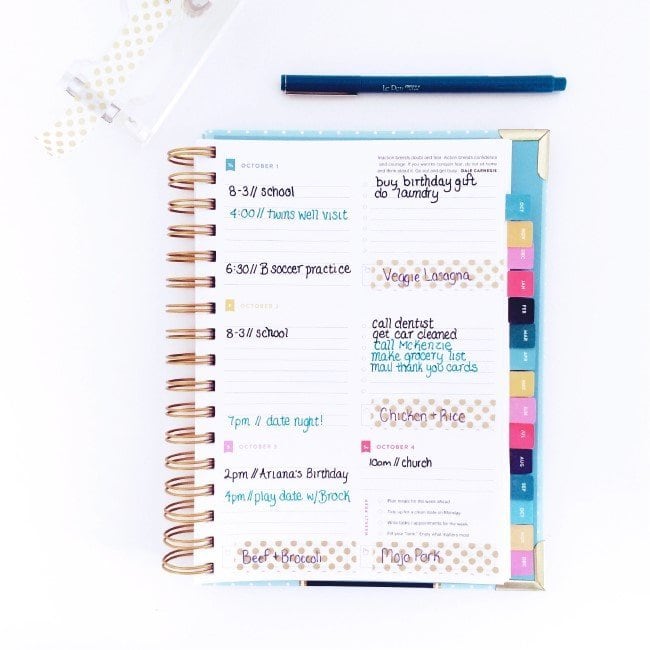 Le Pen
OCTOBER 1
inaction breeds doubt and fear. Action breeds confidence
and courage. If you want to conquer fear, do not sit home
and think about it. Go out and get busy. DALE CARNEGIE
8-3// school
4:00// twins well visit
6:30// B soccer practice
buy birthday gift
do laundry
Veggie Lasagna
OCTOBER 2
8-3// school
7pm // date night!
call dentist
get car cleaned
call McKenzie
make grocery list
mail thank you cards
Chicken + Rice
OCTOBER 3
2pm // Ariana's Birthday
4pm// play date w/Brock
Beef + Broccoli
OCTOBER 4
10am // church
WEEKLY PREP
Plan meals for the week ahead
Tidy up for a clean slate on Monday
Write tasks + appointments for the week
Mojo Pork
OCT
NOV
DEC
JAN
FEB
MAR
APR
MAY
JUN
JUL
AUG
SEP
OCT
NOV
DEC